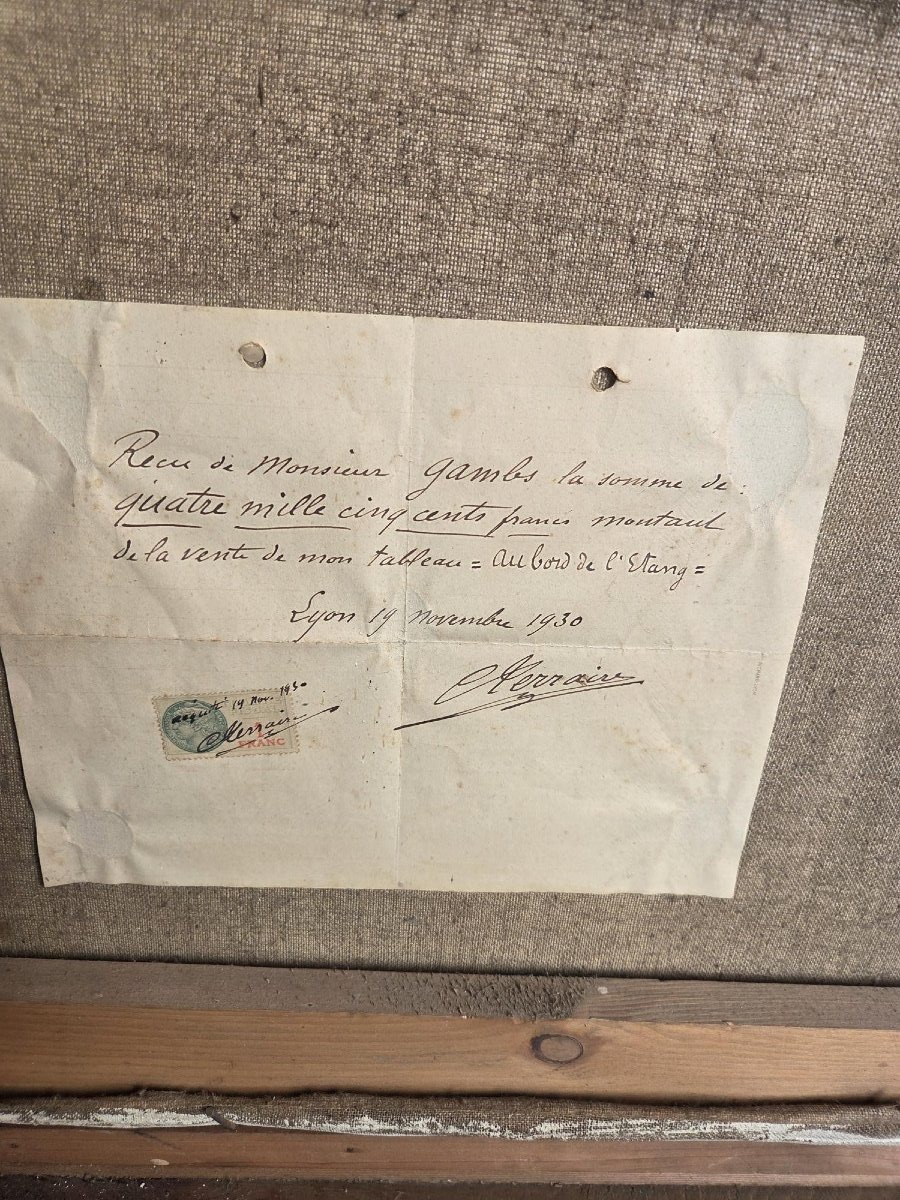 Recu de Monsieur Gambs la somme de :
quatre mille cinq cents francs montant
de la vente de mon tableau = Au bord de l'Etang =
Lyon 19 novembre 1930
Terraire
acquitté 19 Nov. 1930
Terraire
FRANC